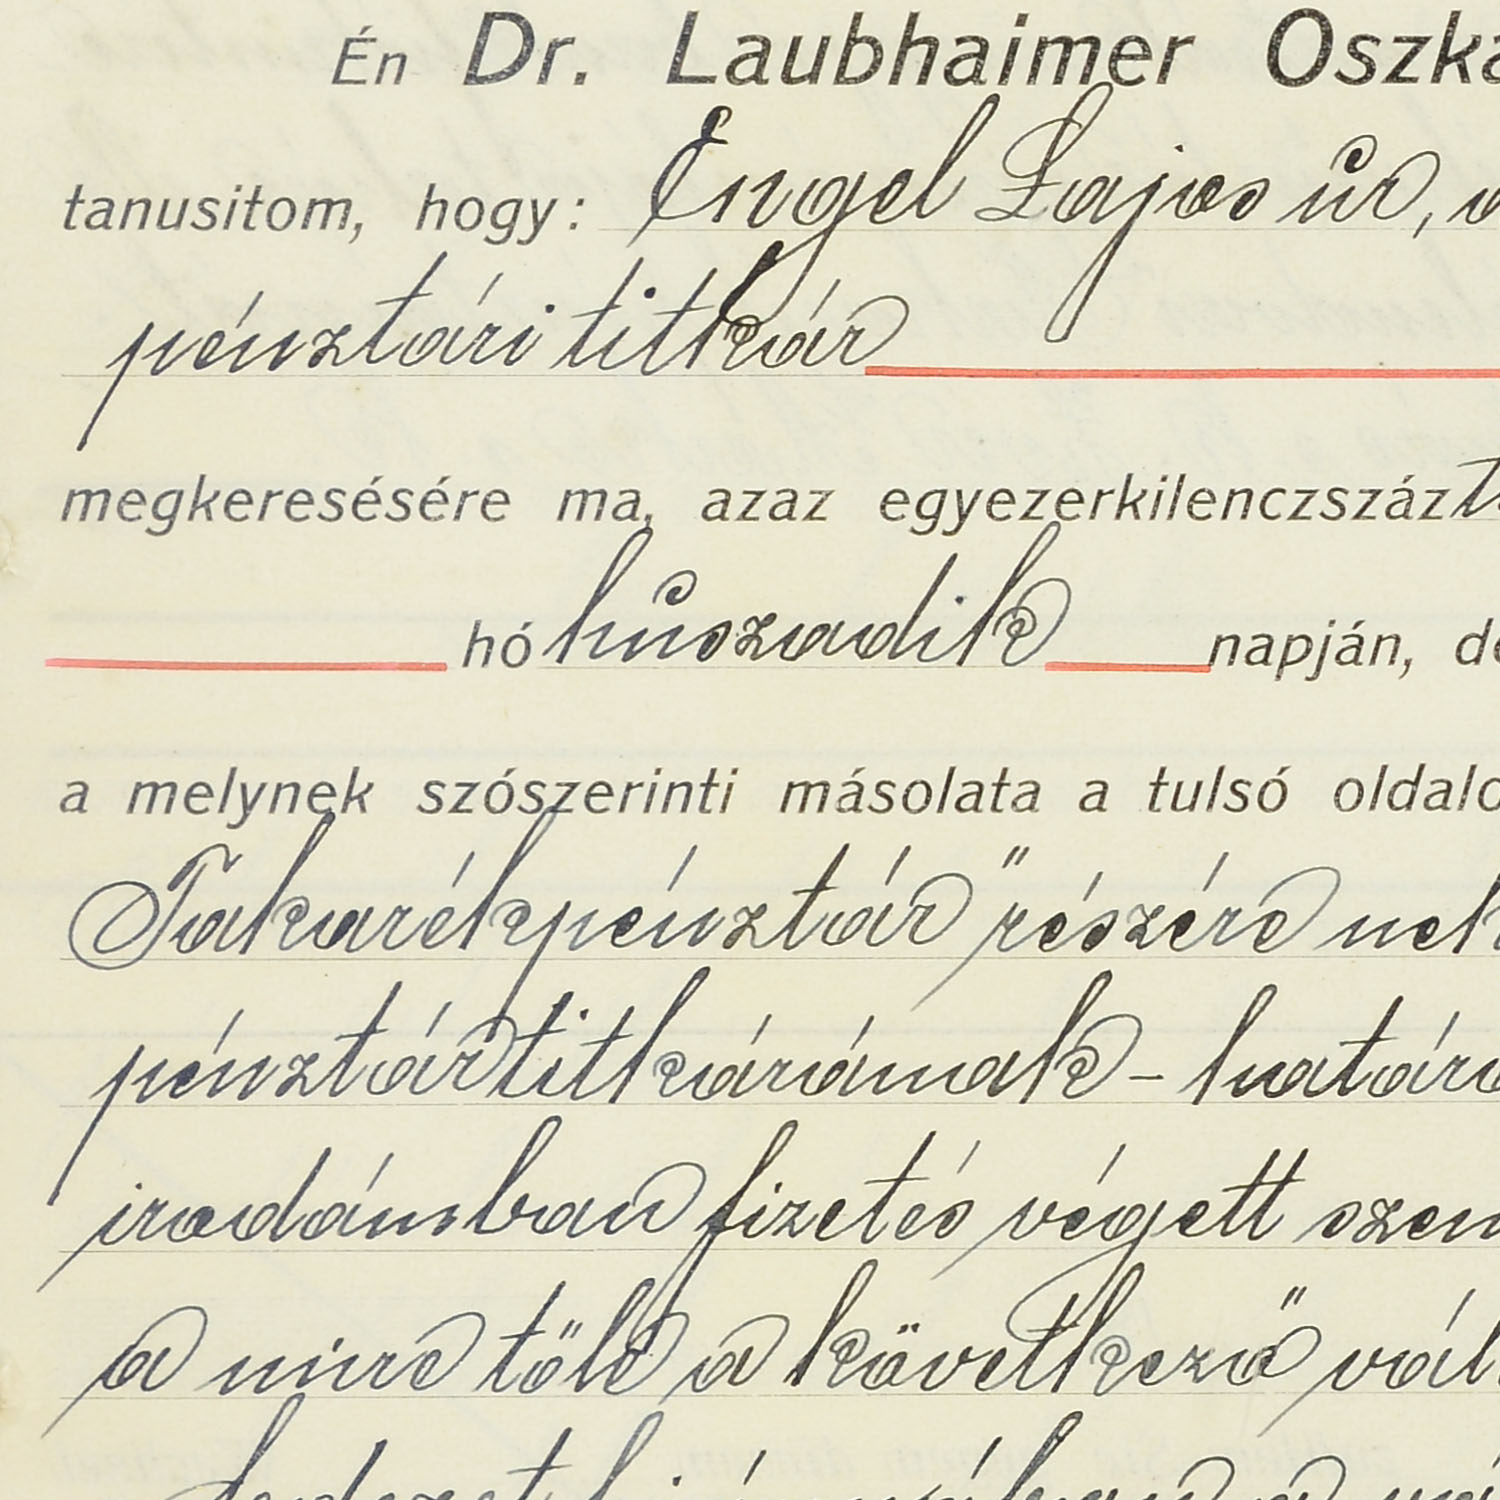 Én Dr. Laubhaimer Oszká
tanusitom, hogy: Engel Lajos úr, a
pénztári titkár
megkeresésére ma, azaz egyezerkilenczszázt
hó húszadik napján, de
a melynek szószerinti másolata a tulsó oldalo
Takarékpénztár" részére nek
pénztártitkárának - határo
irodámban fizetés végett szem
a mire tőle a következő vál